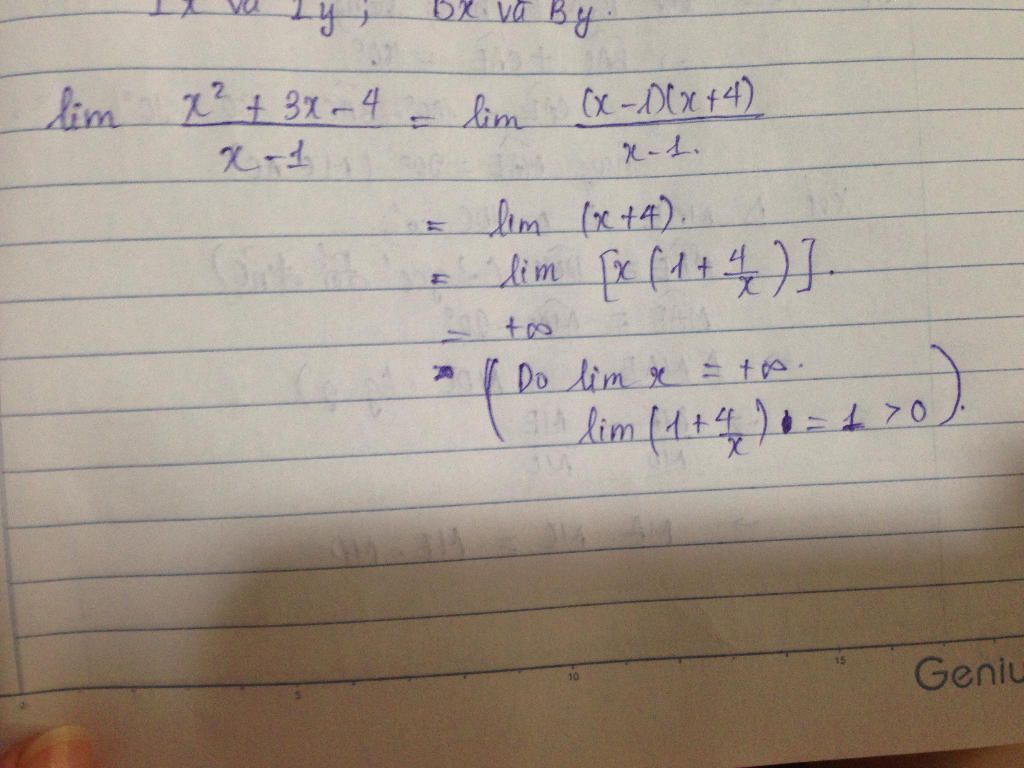 Ix và Iy; Bx và By.
lim (x² + 3x - 4)/(x - 1) = lim ((x - 1)(x + 4))/(x - 1).
= lim (x + 4).
= lim [x(1 + 4/x)].
= +∞
(Do lim x = +∞.
lim (1 + 4/x) = 1 > 0).
5 10 15
Geniu